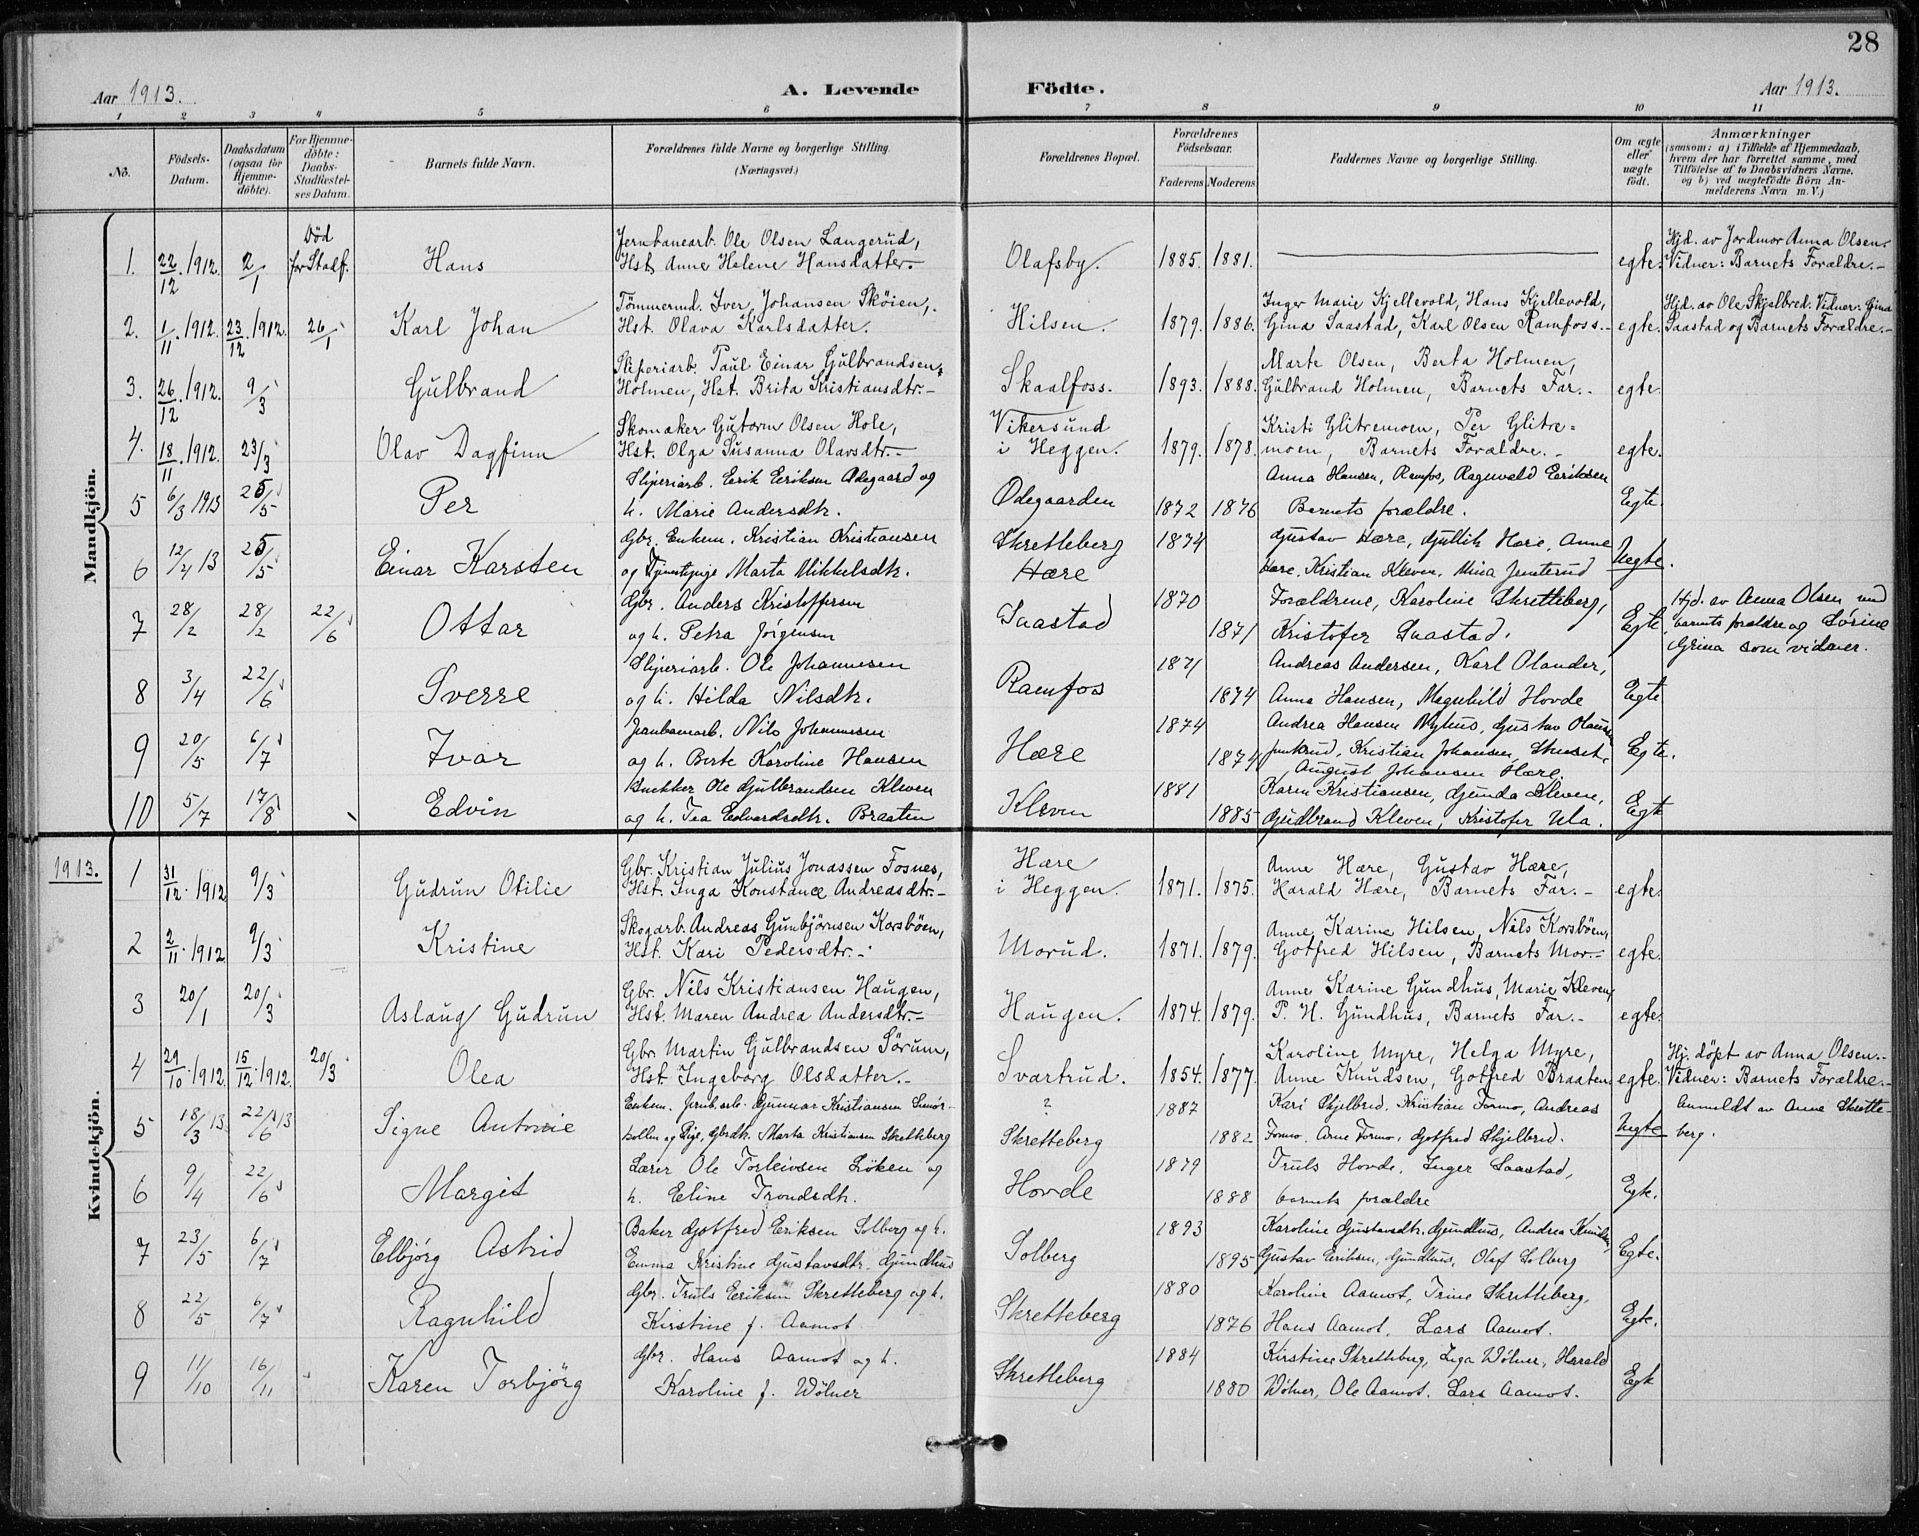 28
Aar 1913.
A. Levende Födte.
Aar 1913.
1 2 3 4 5 6 7 8 9 10 11
No.
Födsels-Datum.
Daabsdatum (ogsaa for Hjemme-döbte).
For Hjemme-döbte: Daabs-Stadfæstel-ses Datum.
Barnets fulde Navn.
Forældrenes fulde Navne og borgerlige Stilling. (Næringsvei.)
Forældrenes Bopæl.
Forældrenes Födselsaar.
Faderens Moderens
Faddernes Navne og borgerlige Stilling.
Om ægte eller uægte födt.
Anmærkninger (saasom: a) i Tilfælde af Hjemmedaab, hvem der har forrettet samme, med Tilföielse af to Daabsvidners Navne, og b) ved uægtefödte Börn An-melderens Navn m. V.)
Mandkjön.
1. 22/12. 1912. 2/1 Död før Stadf. Hans
Jernbanearb. Ole Olsen Langerud,
Hst. Anne Helene Hansdatter.-
Olafsby. 1885. 1881. egte.
Hjd. av Jordmor Anna Olsen.
Vidner: Barnets Forældre.-
2. 1/11. 1912. 23/12. 1912. 26/1 Karl Johan
Tømmermd. Iver Johansen Skøien,
Hst. Olava Karlsdatter.
Hilsen. 1879. 1886.
Inger Marie Kjellevold, Hans Kjellevold,
Gina Saastad, Karl Olsen Ramfoss.- egte.
Hjd. av Ole Skjelbred. Vidner: Gina
Saastad og Barnets Forældre.-
3. 26/12. 1912. 9/3 Gulbrand
Sliperiarb. Paul Einar Gulbrandsen
Holmen, Hst. Brita Kristiansdtr.-
Skaalfoss. 1893. 1888.
Marte Olsen, Berta Holmen,
Gulbrand Holmen, Barnets Far.- egte.
4. 18/11. 1912. 23/3 Olav Dagfinn
Skomaker Gutorm Olsen Hole,
Hst. Olga Susanna Olavsdtr.-
Vikersund
i Heggen. 1879. 1878.
Kristi Glitremoen, Per Glitre-
moen, Barnets Forældre.- egte.
5 6/3 1913 25/5 Per
Sliperiarb. Erik Eriksen Ødegaard og
h. Marie Andersdtr.
Ødegaarden 1872 1876
Anna Hansen, Ramfos, Ragnvald Eriksen
Barnets forældre. Egte.
6 12/4 13 25/5 Einar Karsten
Gbr. Enkem. Kristian Kristiansen
og Tjenestpige Marta Mikkelsdtr.
Skretteberg
Hære 1874
Gustav Hære, Gullik Hære, Anne
Hære, Kristian Kleven, Mina Jemterud Uegte.
7 28/2 28/2 22/6 Ottar
Gbr. Anders Kristoffersen
og h. Petra Jørgensen
Saastad 1870 1871
Forældrene, Karoline Skretteberg,
Kristofer Saastad. Egte.
Hjd. av Anna Olsen med
barnets forældre og Sørine
Grina som vidner.
8 3/4 22/6 Sverre
Sliperiarb. Ole Johannesen
og h. Hilda Nilsdtr.
Ramfos 1871 1874
Andreas Andersen, Karl Olander,
Anna Hansen, Magnhild Hovde Egte
9 20/5 6/7 Ivar
Jernbanearb. Nils Johannesen
og h. Berte Karoline Hansen
Hære 1874 1874
Andrea Hansen Nyhus, Gustav Olausen
Jemterud, Kristian Johansen,
August Johansen Hære. Egte.
10 5/7 17/8 Edvin
Snekker Ole Gulbrandsen Kleven
og h. Tea Edvardsdtr. Braaten
Kleven 1881 1885
Karen Kristiansen, Gunda Kleven,
Gudbrand Kleven, Kristofer Ula. Egte
1913.
Kvindekjön.
1 31/12. 1912 9/3 Gudrun Otilie
Gbr. Kristian Julius Jonassen Fosnes,
Hst. Inga Konstance Andreasdtr.-
Hære
i Heggen. 1871. 1875.
Anne Hære, Gustav Hære,
Harald Hære, Barnets Far.- egte.
2 2/11. 1912 9/3 Kristine
Skogarb. Andreas Gunbjørnsen Korsbøen,
Hst. Kari Pedersdtr.-
Morud. 1871. 1879.
Anne Karine Hilsen, Nils Korsbøen,
Gotfred Hilsen, Barnets Mor.- egte.
3 20/1 20/3 Aslaug Gudrun
Gbr. Nils Kristiansen Haugen,
Hst. Maren Andrea Andersdtr.-
Haugen. 1874. 1879.
Anne Karine Gundhus, Marie Kleven,
P. H. Gundhus, Barnets Far.- egte.
4 29/10. 1912. 15/12. 1912. 20/3 Olea
Gbr. Martin Gulbrandsen Sørum,
Hst. Ingeborg Olsdatter.-
Svartrud. 1854. 1877.
Karoline Myre, Helga Myre,
Anne Knudsen, Gotfred Braaten egte.
Hj. døpt av Anna Olsen.-
Vidner: Barnets Forældre.-
5 18/3 13 22/6 13 Signe Antonie
Enkem. Jernb.arb. Gunnar Kristiansen Smør-
kollen og Pige, Gbrdtr. Marta Kristiansen Skretteberg
?
Skretteberg 1887 1882
Kari Skjelbred, Kristian Formo, Andreas
Formo, Arne Formo, Gotfred Skjelbred. Uegte
Anmeldt av Anne Skrette-
berg.
6 9/4 22/6 Margit
Lærer Ole Torleivsen Løken og
h. Eline Trondsdtr.
Hovde 1879 1888
Truls Hovde, Inger Saastad,
barnets forældre Egte.
7 23/5 6/7 Elbjørg Astrid
Baker Gotfred Eriksen Solberg og h.
Emma Kristine Gustavsdtr. Gundhus
Solberg 1893 1895
Karoline Gustavsdtr. Gundhus, Andrea Knudsen,
Gustav Eriksen, Gundhus, Olaf Solberg Egte.
8 22/5 6/7 Ragnhild
Gbr. Truls Eriksen Skretteberg og h.
Kirstine f. Aamot.
Skretteberg 1880 1876
Karoline Aamot, Trine Skretteberg,
Hans Aamot, Lars Aamot. Egte.
9 11/10 16/11 Karen Torbjørg
Gbr. Hans Aamot og h.
Karoline f. Wølner
Skretteberg 1884 1880
Kirstine Skretteberg, Inga Wølner, Harald
Wølner, Ole Aamot. Lars Aamot. Egte